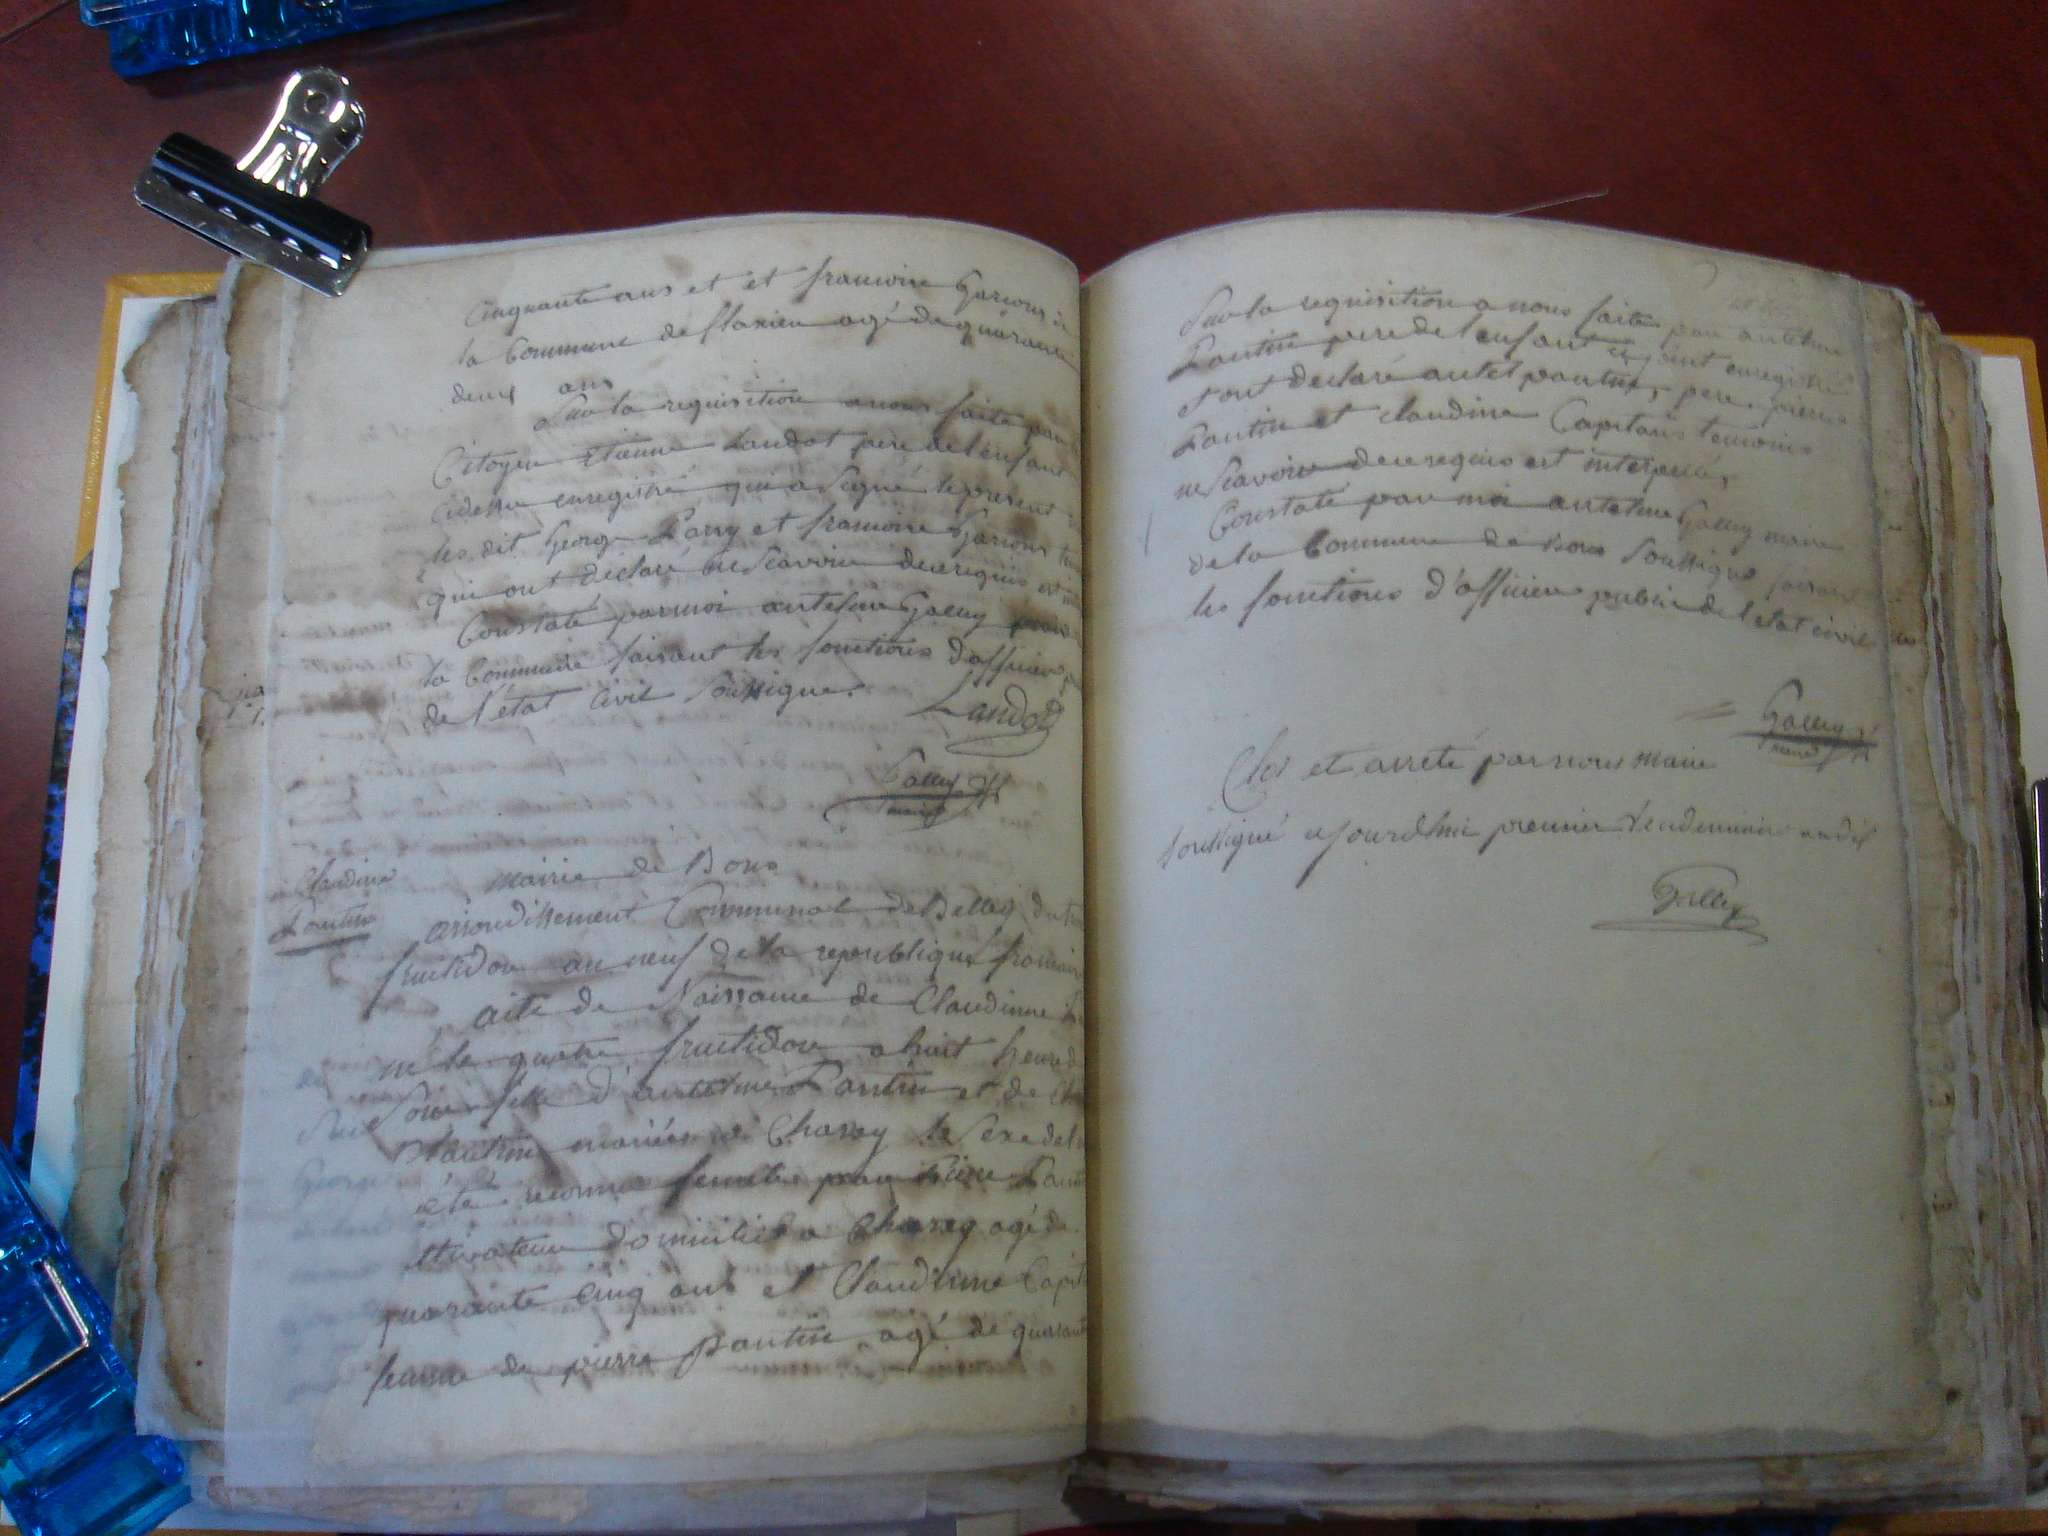 cinquante ans et et francoise Garious de
la Commune de flaxieu agé de quarante
deux ans
Sur la requisition a nous faite par
Citoyen Etienne Landot pere de l'enfant
cidessu enregistré qui a signé le present
les dit George Parry et francoise Garious
qui ont declaré ne scavoir de ce requis est
Constaté par moi antelme Gallay
la Commune faisant les fonctions d'officier
de l'état Civil soussigne.
Landot
Gallay
maire
Claudine
Pantin
mairie de Bons
arrondissement Communal de Belley du
fruitidor an neuf de la republique francaise
acte de Naissance de Claudinne
né le quatre fruitidor a huit heure d
Soir fille d'antelme Pantin et de
Pantin mariées a Charey le sexe de l
été reconnu femelle par Pierre Pant
ltivateur domicilié a Charey agé de
quarante cinq ans et Claudinne Capit
femme de pierre pantin agé de quarante
Sur la requisition a nous faite par antelme
Pantin pere de l'enfant ci joint enregistré
et ont declaré antel pantin, pere pierre
Pantin et claudine Capitan temoins
ne scavoir de ce requis est interpellé,
Constaté par moi antelme Gallay maire
de la Commune de Bons soussigne faisant
les fonctions d'officier public de l'etat civil
Gallay
maire
Clos et arreté par nous maire
soussigné cejourdhui premier vendemiaire an dix
Gallay